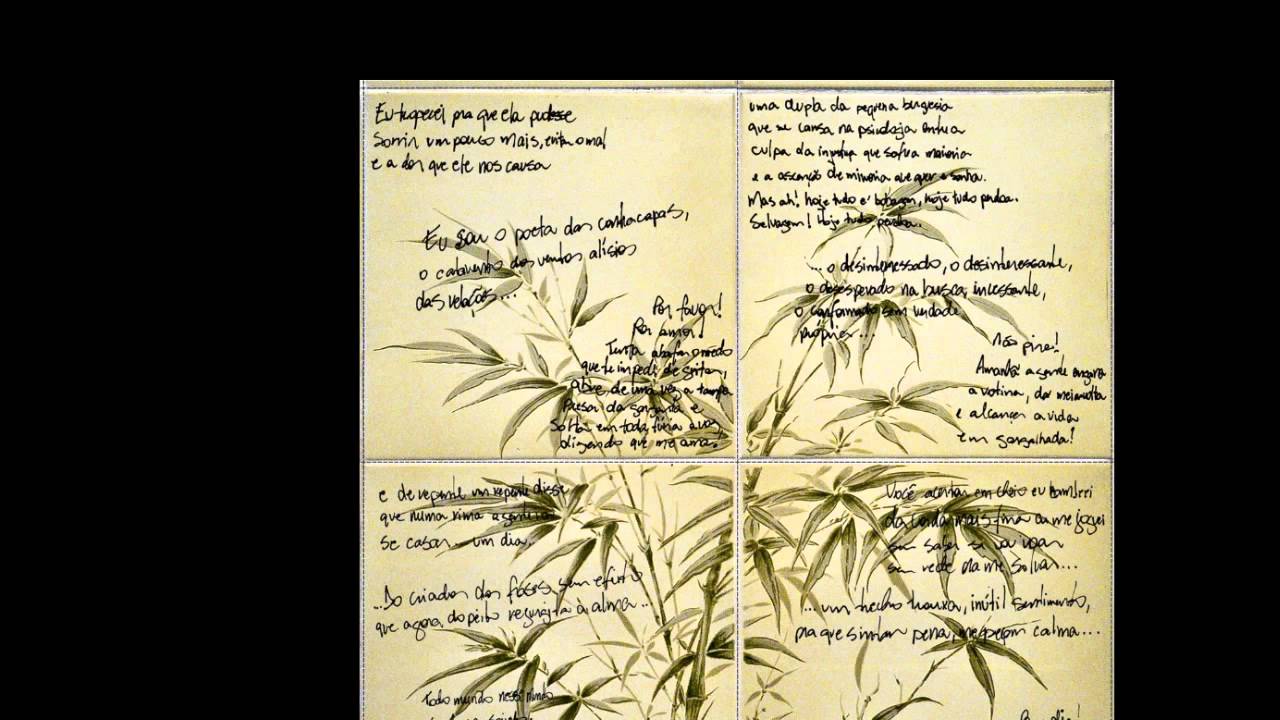 Eu tropecei pra que ela pudesse
Sorrir um pouco mais, evita o mal
e a dor que ele nos causa
Eu sou o poeta das contracapas,
o catavento dos ventos alísios
das relações...
Por favor!
Por amor!
Tenta abafar o medo
que te impede de gritar,
abre de uma vez a tampa
Presa da garganta e
Solta em toda fúria a voz
dizendo que me ama.
uma dupla da pequena burguesia
que se cansa na psicologia
culpa da que maioria
e a ascenção de minoria que quer e sonha.
Mas ah! hoje tudo é bobagem, hoje tudo perdoa.
Selvagem! Hoje tudo perdoa.
...o desinteressado, o desinteressante,
o desesperado na busca incessante,
o conformado sem verdade
própria...
Não pire!
Amanhã a gente engana
a rotina, dá meia volta
e alcança a vida
em gargalhada!
e de repente um repente disse
que numa rima a gente ia
se casar... um dia.
...Do criador das frases sem efeito
que agora do peito regurgita à alma...
Você acertar em cheio eu tombei
da corda mais fina me joguei
sem saber se vai voar
sem rede pra me salvar...
...um trecho trouxa, inútil sentimento,
pra que sintam pena, me peçam calma...
Todo mundo nesse mundo